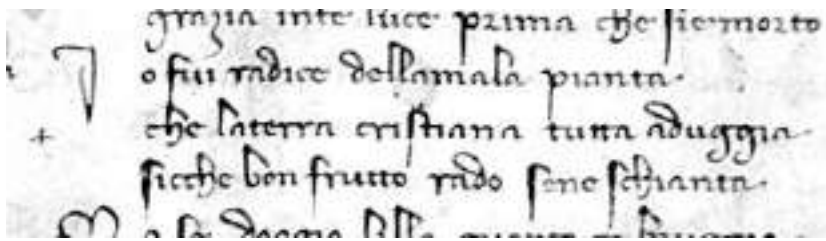 grazia inte luce prima che sie morto
I o fui radice dellamala pianta.
che laterra cristiana tutta aduggia.
sicche bon frutto rado sene schianta.
M a se doagio lilla guanto